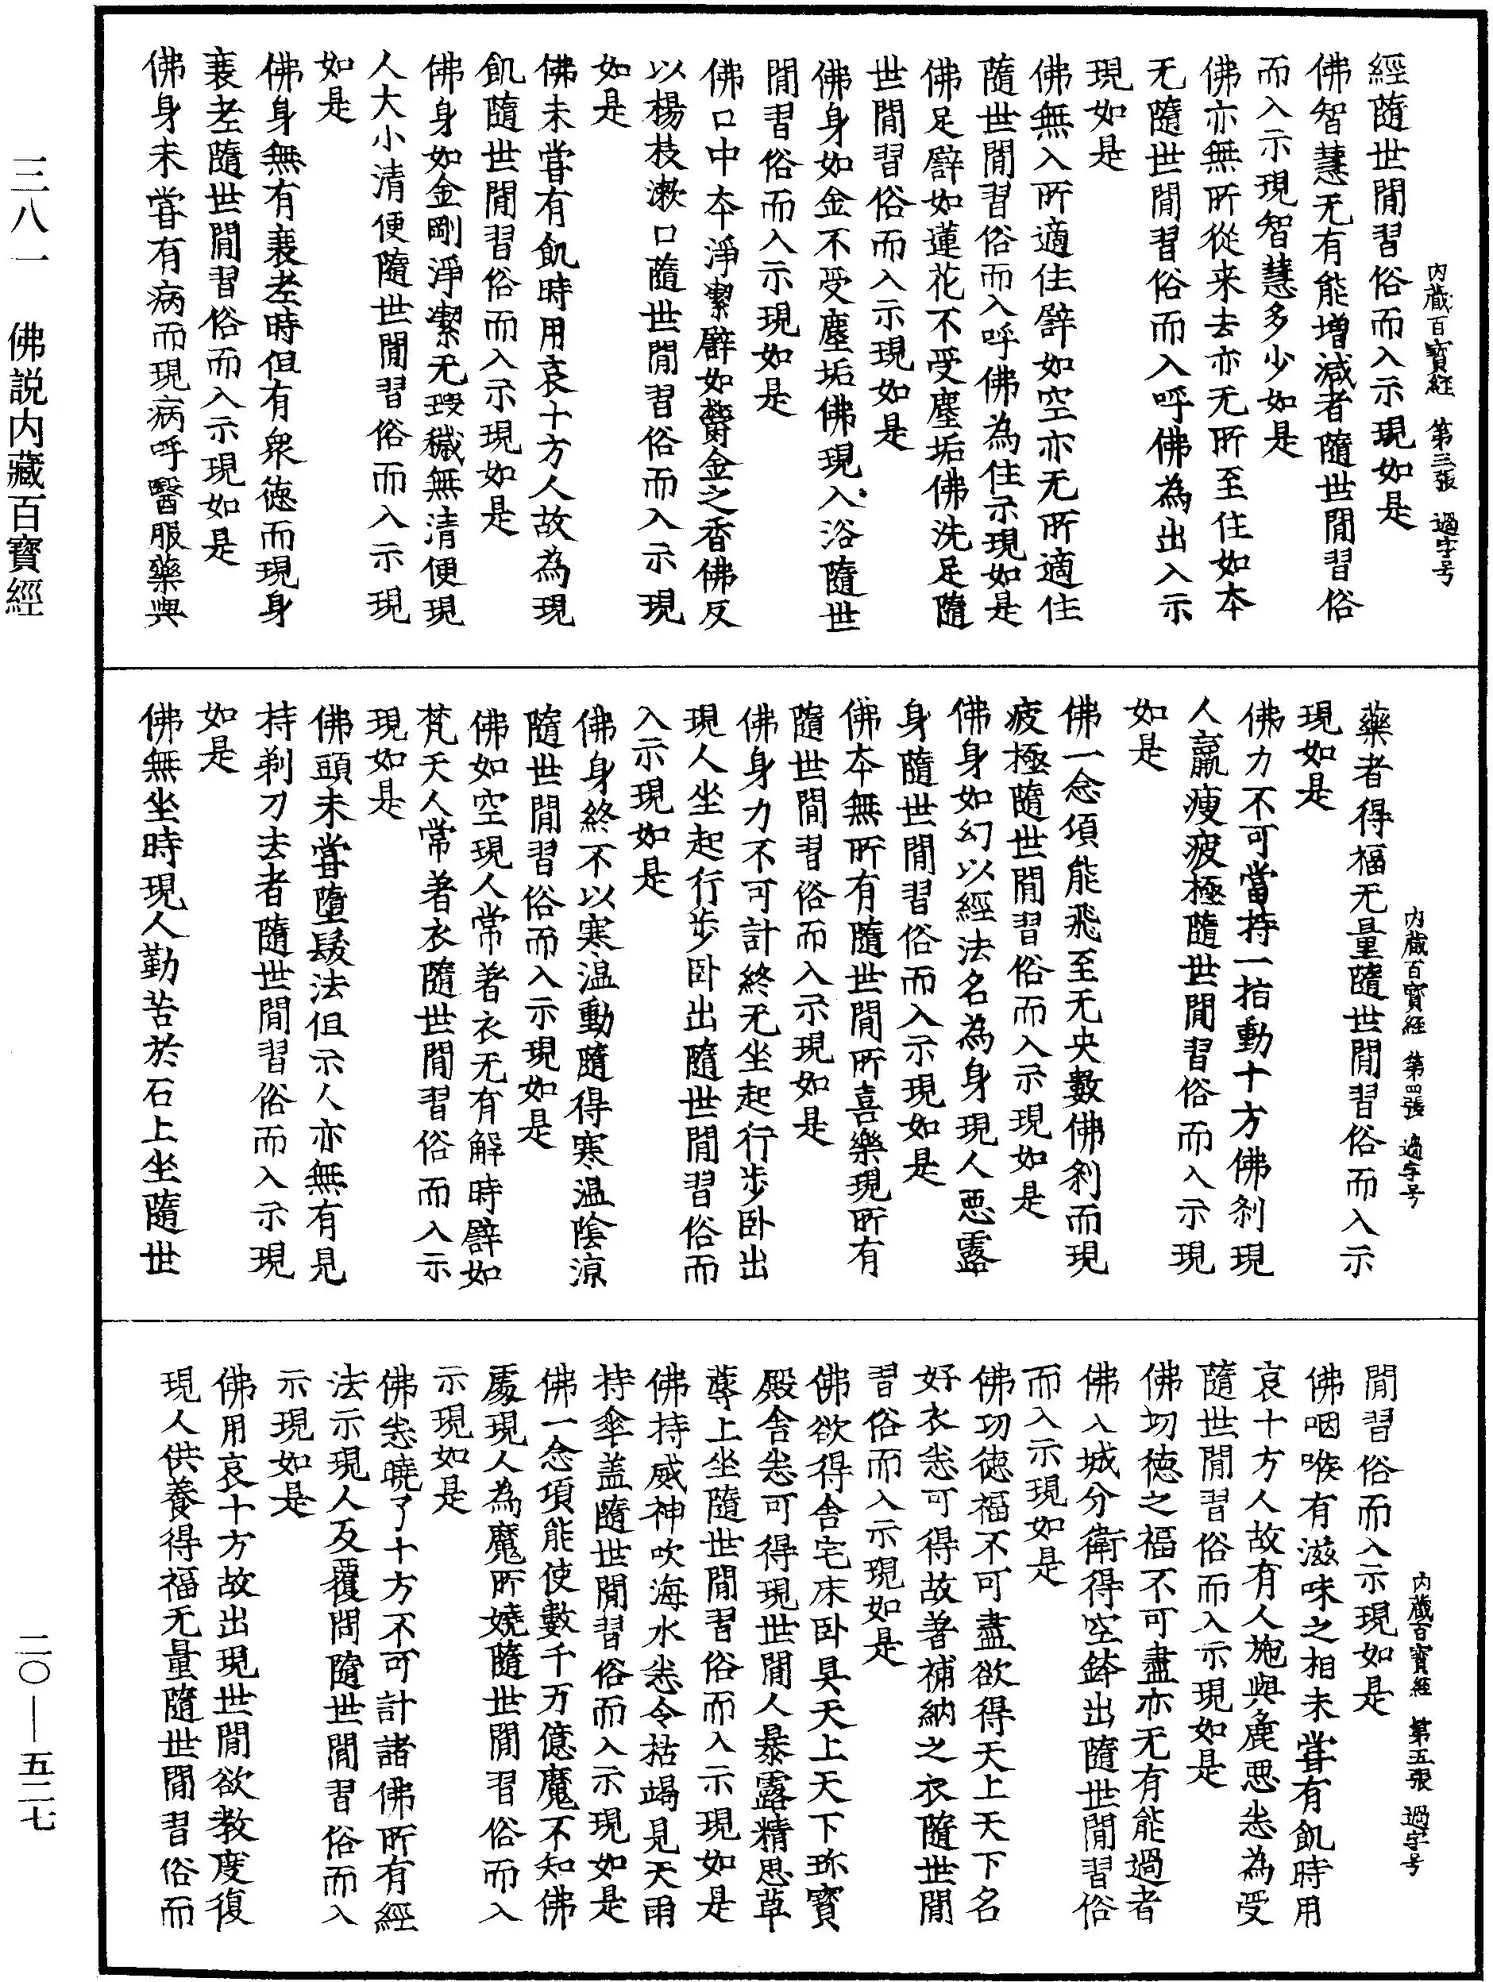 經隨世閒習俗而入示現如是
佛智慧无有能增減者隨世閒習俗
而入示現智慧多少如是
佛亦無所從来去亦无所至住如本
无隨世閒習俗而入呼佛為出入示
現如是
佛無入所適住譬如空亦无所適住
隨世閒習俗而入呼佛為住示現如是
佛足譬如蓮花不受塵垢佛洗足隨
世閒習俗而入示現如是
佛身如金不受塵垢佛現入浴隨世
閒習俗而入示現如是
佛口中本淨潔譬如欝金之香佛反
以楊枝漱口隨世閒習俗而入示現
如是
佛未甞有飢時用哀十方人故為現
飢隨世閒習俗而入示現如是
佛身如金剛淨潔无瑕穢無清便現
人大小清便隨世閒習俗而入示現
如是
佛身無有衰老時但有衆德而現身
衰老隨世閒習俗而入示現如是
佛身未甞有病而現病呼醫服藥與
内藏百寶經 第三張 過字号
藥者得福无量隨世閒習俗而入示
現如是
佛力不可當持一指動十方佛刹現
人羸瘦疲極隨世閒習俗而入示現
如是
佛一念頃能飛至无央數佛刹而現
疲極隨世閒習俗而入示現如是
佛身如幻以經法名為身現人惡露
身隨世閒習俗而入示現如是
佛本無所有隨世閒所喜樂現所有
隨世閒習俗而入示現如是
佛身力不可計終无坐起行步卧出
現人坐起行步卧出隨世閒習俗而
入示現如是
佛身終不以寒温動隨得寒温陰涼
隨世閒習俗而入示現如是
佛如空現人常著衣无有解時譬如
梵天人常著衣隨世閒習俗而入示
現如是
佛頭未甞墮髮法但示人亦無有見
持剃刀去者隨世閒習俗而入示現
如是
佛無坐時現人勤苦於石上坐隨世
内藏百寶經 第四張 過字号
閒習俗而入示現如是
佛咽喉有滋味之相未甞有飢時用
哀十方人故有人施與麁惡悉為受
隨世閒習俗而入示現如是
佛功德之福不可盡亦无有能過者
佛入城分衛得空鉢出隨世閒習俗
而入示現如是
佛功德福不可盡欲得天上天下名
好衣悉可得故著補納之衣隨世閒
習俗而入示現如是
佛欲得舍宅床卧具天上天下珎寳
殿舍悉可得現世閒人暴露精思草
蓐上坐隨世閒習俗而入示現如是
佛持威神吹海水悉令枯竭見天雨
持傘盖隨世閒習俗而入示現如是
佛一念項能使數千万億魔不知佛
處現人為魔所嬈隨世閒習俗而入
示現如是
佛悉曉了十方不可計諸佛所有經
法示現人反覆問隨世閒習俗而入
示現如是
佛用哀十方故出現世閒欲教度復
現人供養得福无量隨世閒習俗而
内藏百寶經 第五張 過字号
三八一 佛説内藏百寶經
二〇——五二七